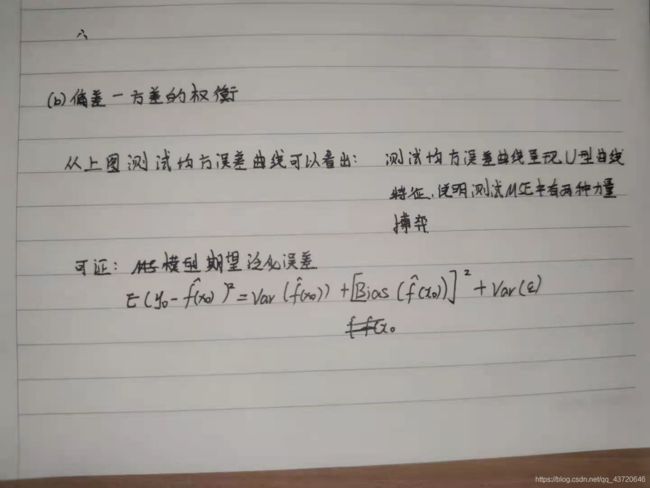 (b) 偏差一方差的权衡
从上图测试均方误差曲线可以看出： 测试均方误差曲线呈现U型曲线
特征，说明测试MSE中有两种力量
博弈
可证： 模型期望泛化误差
E(y₀-f̂(x₀))²=Var(f̂(x₀))+[Bias(f̂(x₀))]²+Var(ε)
https://blog.csdn.net/qq_43720646